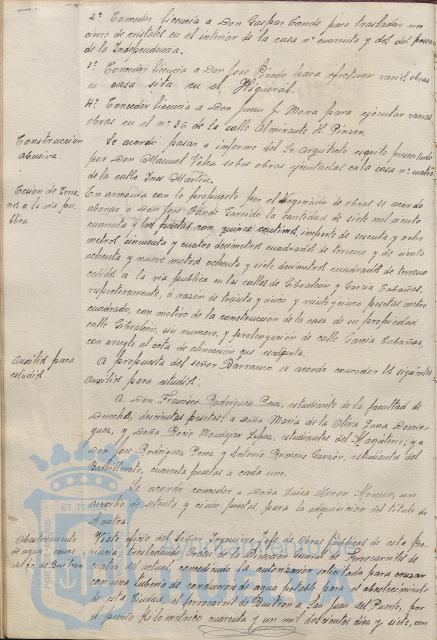 2º Conceder licencia a Don Gaspar Conde para trasladar un
cierre de cristales en el interior de la casa nº cuarenta y dos del paseo
de la Independencia.
3º Conceder licencia a Don Jose Pinedo para efectuar varias obras
en casa sita en el Higueral.
4º Conceder licencia a Don Juan J. Mora para ejecutar varias
obras en el nº 36 de la calle Almirante H. Pinzon.
Construccion
abusiva.
Se acordo pasar a informe del Sr. Arquitecto escrito presentado
por Don Manuel Velez sobre obras ejecutadas en la casa nº cuatro
de la calle Ines Martin.
Cesion de terre
nos a la via pu
blica
En armonia con lo propuesto por el Negociado de obras se acordo
abonar a Don Jose Garrido la cantidad de siete mil ciento
cuarenta y pesetas con quince centimos importe de sesenta y ocho
metros cincuenta y cuatro decimetros cuadrados de terreno y de ciento
ochenta y nueve metros ochenta y siete decimetros cuadrados de terreno
cedidos a la via publica en las calles de Gibraleon y Garcia Cabañas,
respectivamente, a razon de treinta y cinco y veinticinco pesetas metro
cuadrado, con motivo de la construccion de la casa de su propiedad
calle Gibraleon, sin numero, y prolongacion de calle Garcia Cabañas,
con arreglo al acta de alineacion que
Auxilios para
estudios
A propuesta del señor Barranco se acordo conceder los siguientes
auxilios para estudios:
A Don Francisco Rodriguez Perez, estudiante de la facultad de
Derecho, doscientas pesetas; a Doña Maria de la Olva Luna Domin
guez, y Doña Rocio Lopez, estudiantes del Magisterio; y a
Don Jose Rodriguez Perez y Antonio Romero Garzón, estudiantes del
Bachillerato, cuarenta pesetas a cada uno.
Se acordo conceder a Doña Luisa un
auxilio de setenta y cinco pesetas para la adquisicion del titulo de
Maestra.
Abastecimiento
de agua: cruce
del f.c. de Buitron
Visto oficio del señor Ingeniero Jefe de Obras Publicas de esta pro
vincia, trasladando orden de la Direccion General de Ferrocarriles de
cuatro del actual, concediendo la autorizacion solicitada para cruzar
con una tuberia de conduccion de agua potable para el abastecimiento
de esta Ciudad, el ferrocarril de Buitron a San Juan del Puerto, por
el punto kilometrico cuarenta y un mil doscientos diez y siete, con